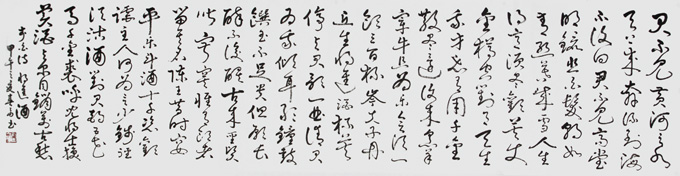 君不見黃河之水
天上來奔流到海
不復回君不見高堂
明鏡悲白髮朝如
青絲暮成雪人生
得意須盡歡莫使
金樽空對月天生
我才必有用千金
散盡還復來烹羊
宰牛且為樂會須一
飲三百杯岑夫子丹
丘生將進酒杯莫
停與君歌一曲請君
為我傾耳聽鐘鼓
饌玉不足貴但願長
醉不復醒古來聖賢
皆寂寞惟有飲者
留其名陳王昔時宴
平樂斗酒十千恣歡
謔主人何為言少錢徑
須沽酒對君酌五花
馬千金裘呼兒將出換
美酒與爾同銷萬古愁
李白詩將進酒
甲午之夏書